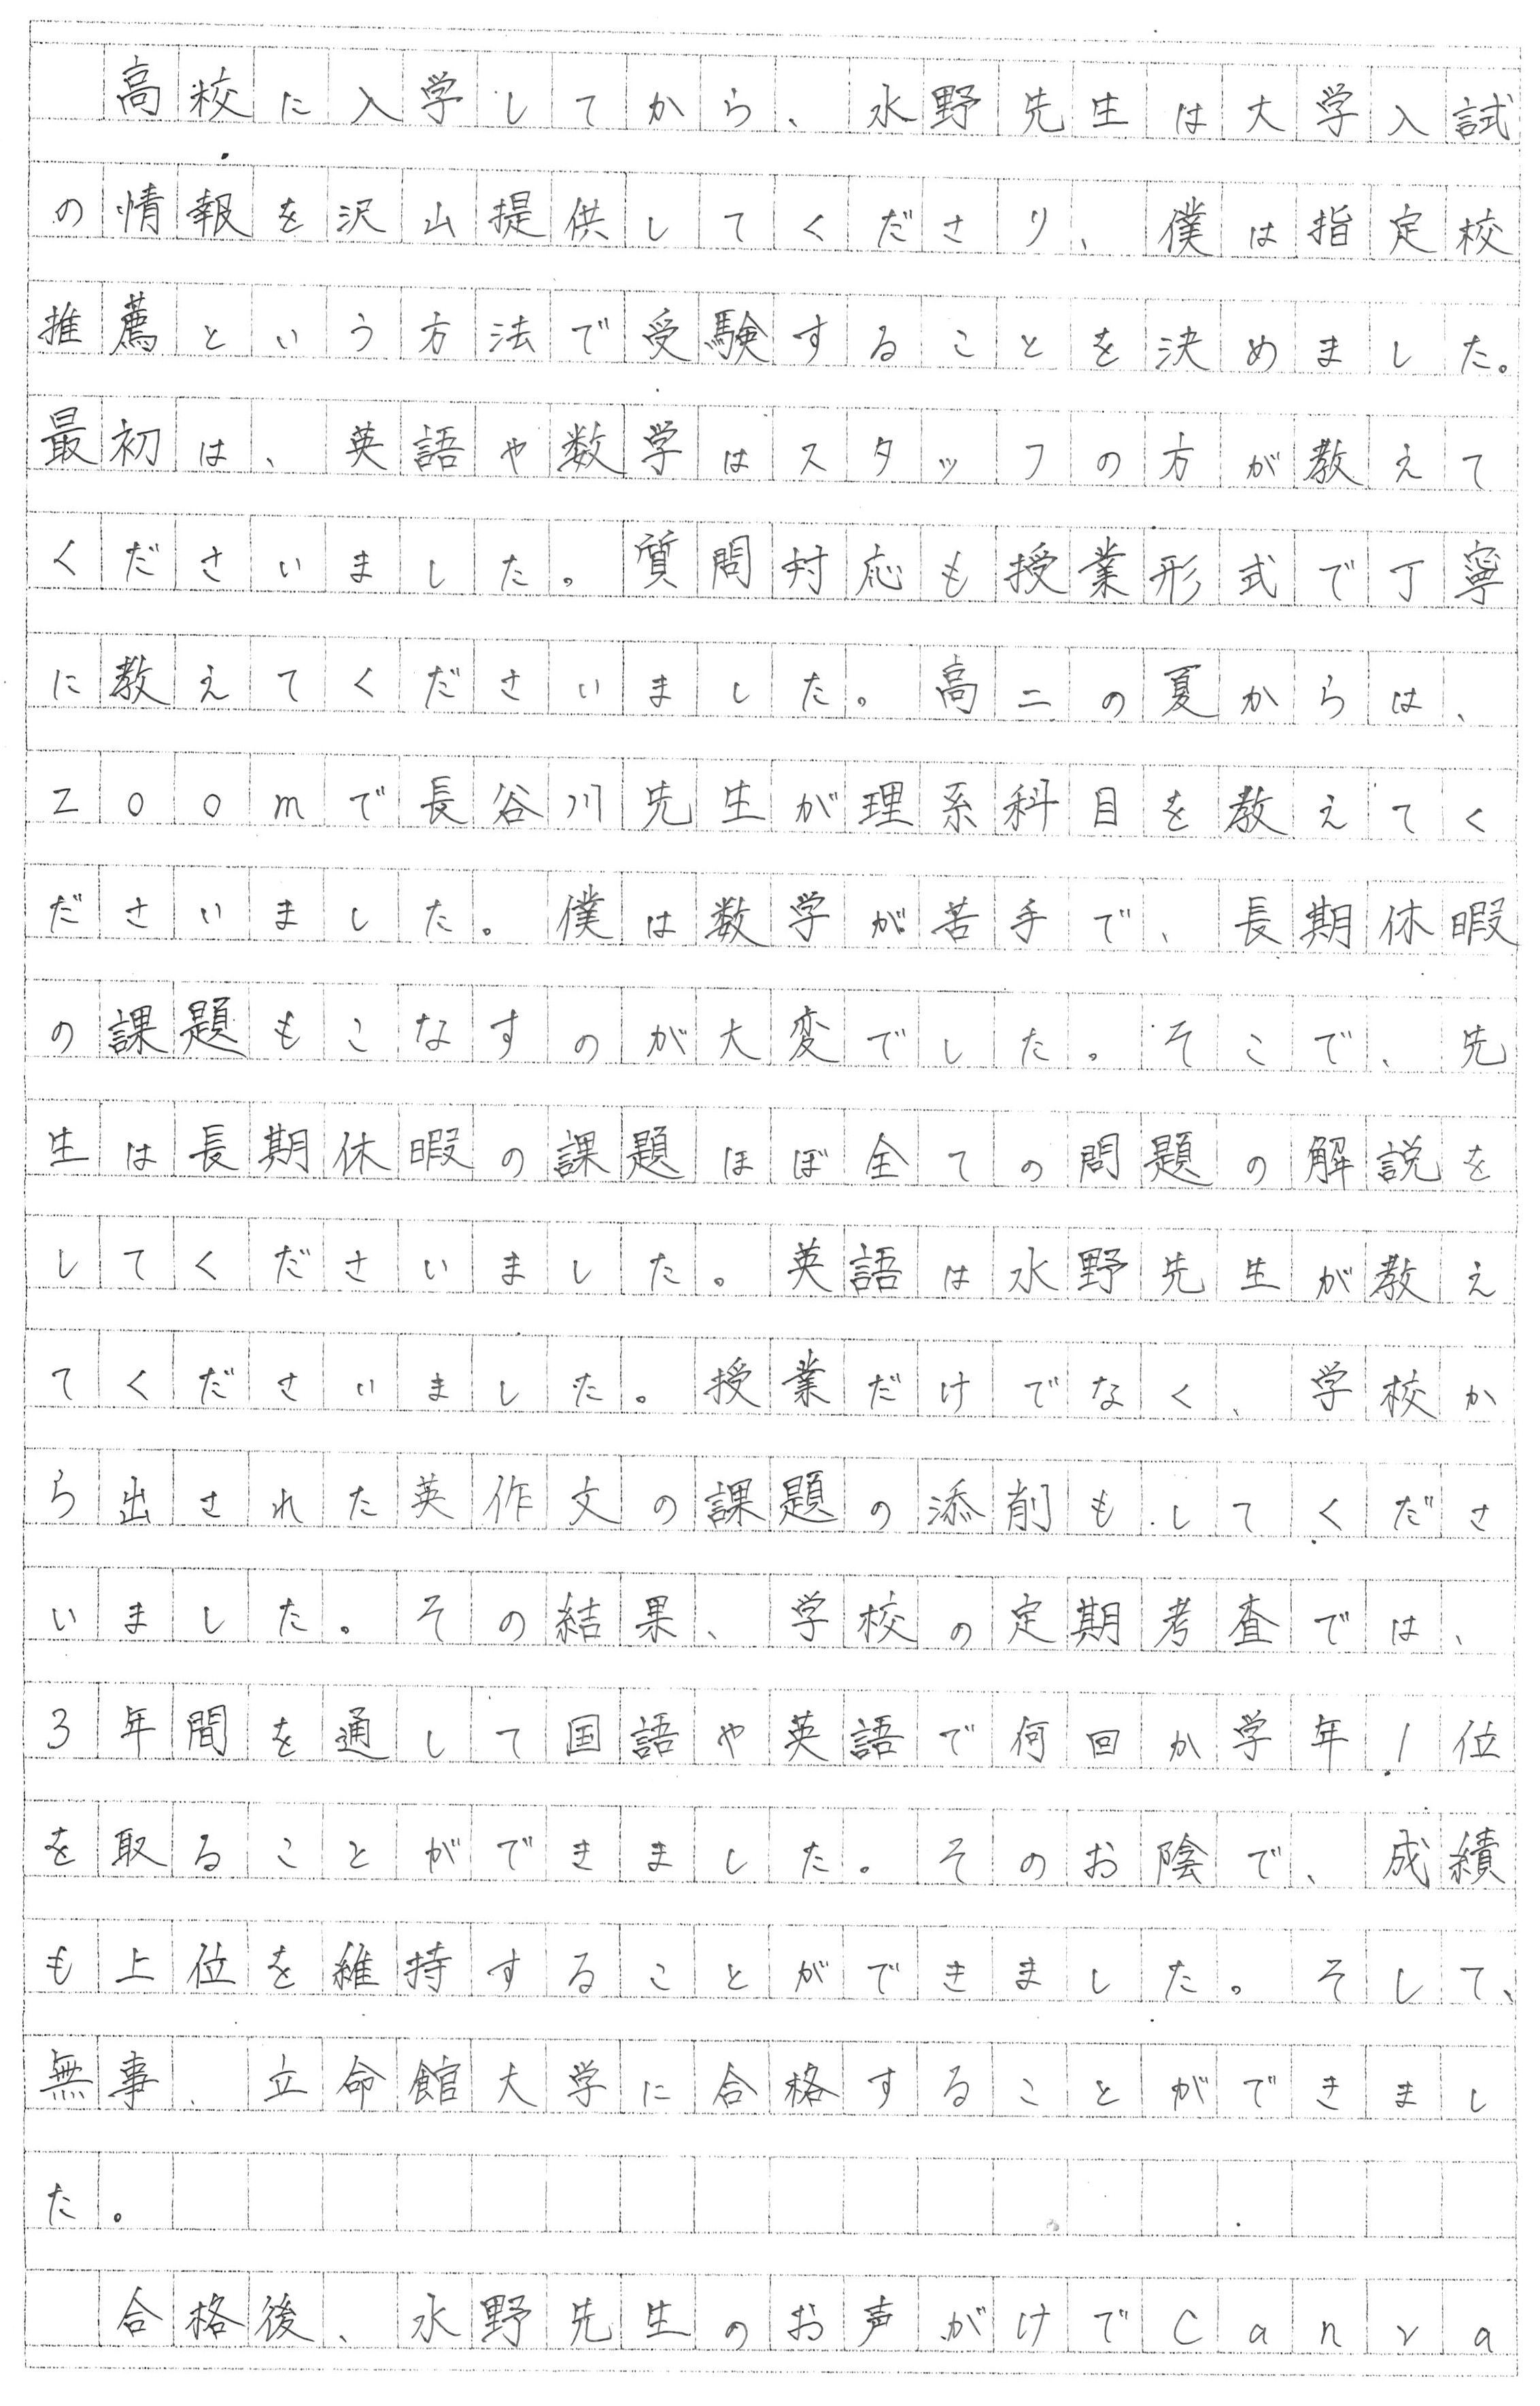 高校に入学してから、水野先生は大学入試
の情報を沢山提供してくださり、僕は指定校
推薦という方法で受験することを決めました。
最初は、英語や数学はスタッフの方が教えて
くださいました。質問対応も授業形式で丁寧
に教えてくださいました。高二の夏からは、
Zoomで長谷川先生が理系科目を教えてく
ださいました。僕は数学が苦手で、長期休暇
の課題もこなすのが大変でした。そこで、先
生は長期休暇の課題ほぼ全ての問題の解説を
してくださいました。英語は水野先生が教え
てくださいました。授業だけでなく、学校か
ら出された英作文の課題の添削もしてくださ
いました。その結果、学校の定期考査では、
3年間を通して国語や英語で何回か学年1位
を取ることができました。そのお陰で、成績
も上位を維持することができました。そして、
無事、立命館大学に合格することができまし
た。
　合格後、水野先生のお声がけでCanva